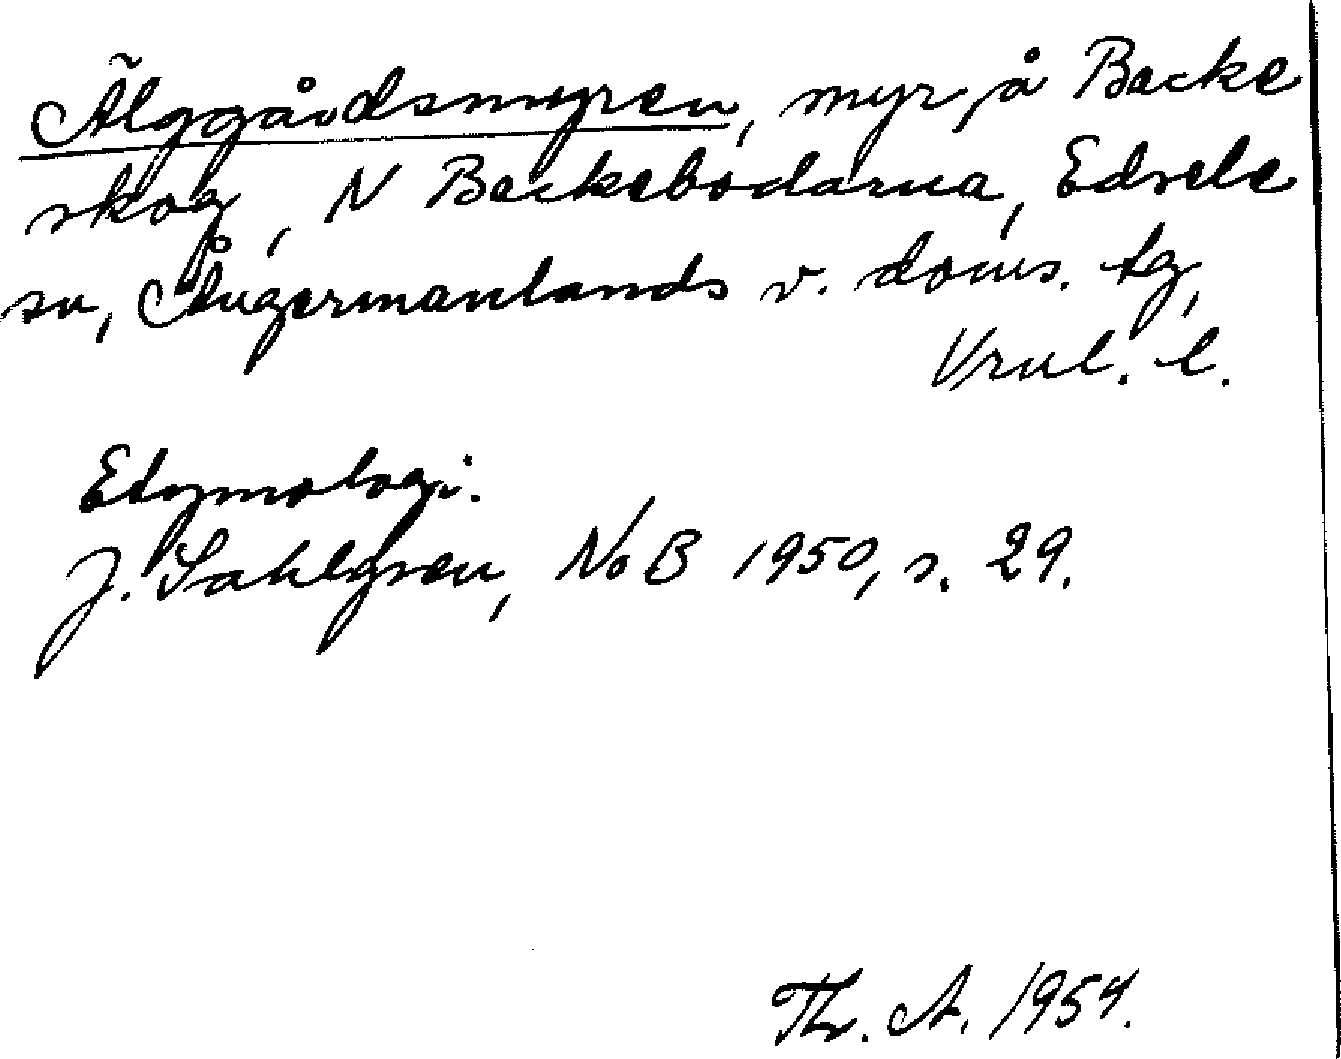 Älggårdsmyren, myr, å Backe
skog, N Backebodarna, Edsele
sn, Ångermanlands v. doms. tg,
Vrnl. l.
Etymologi.
J. Sahlgren, NoB 1950, s. 29.
Th. A. 1954.